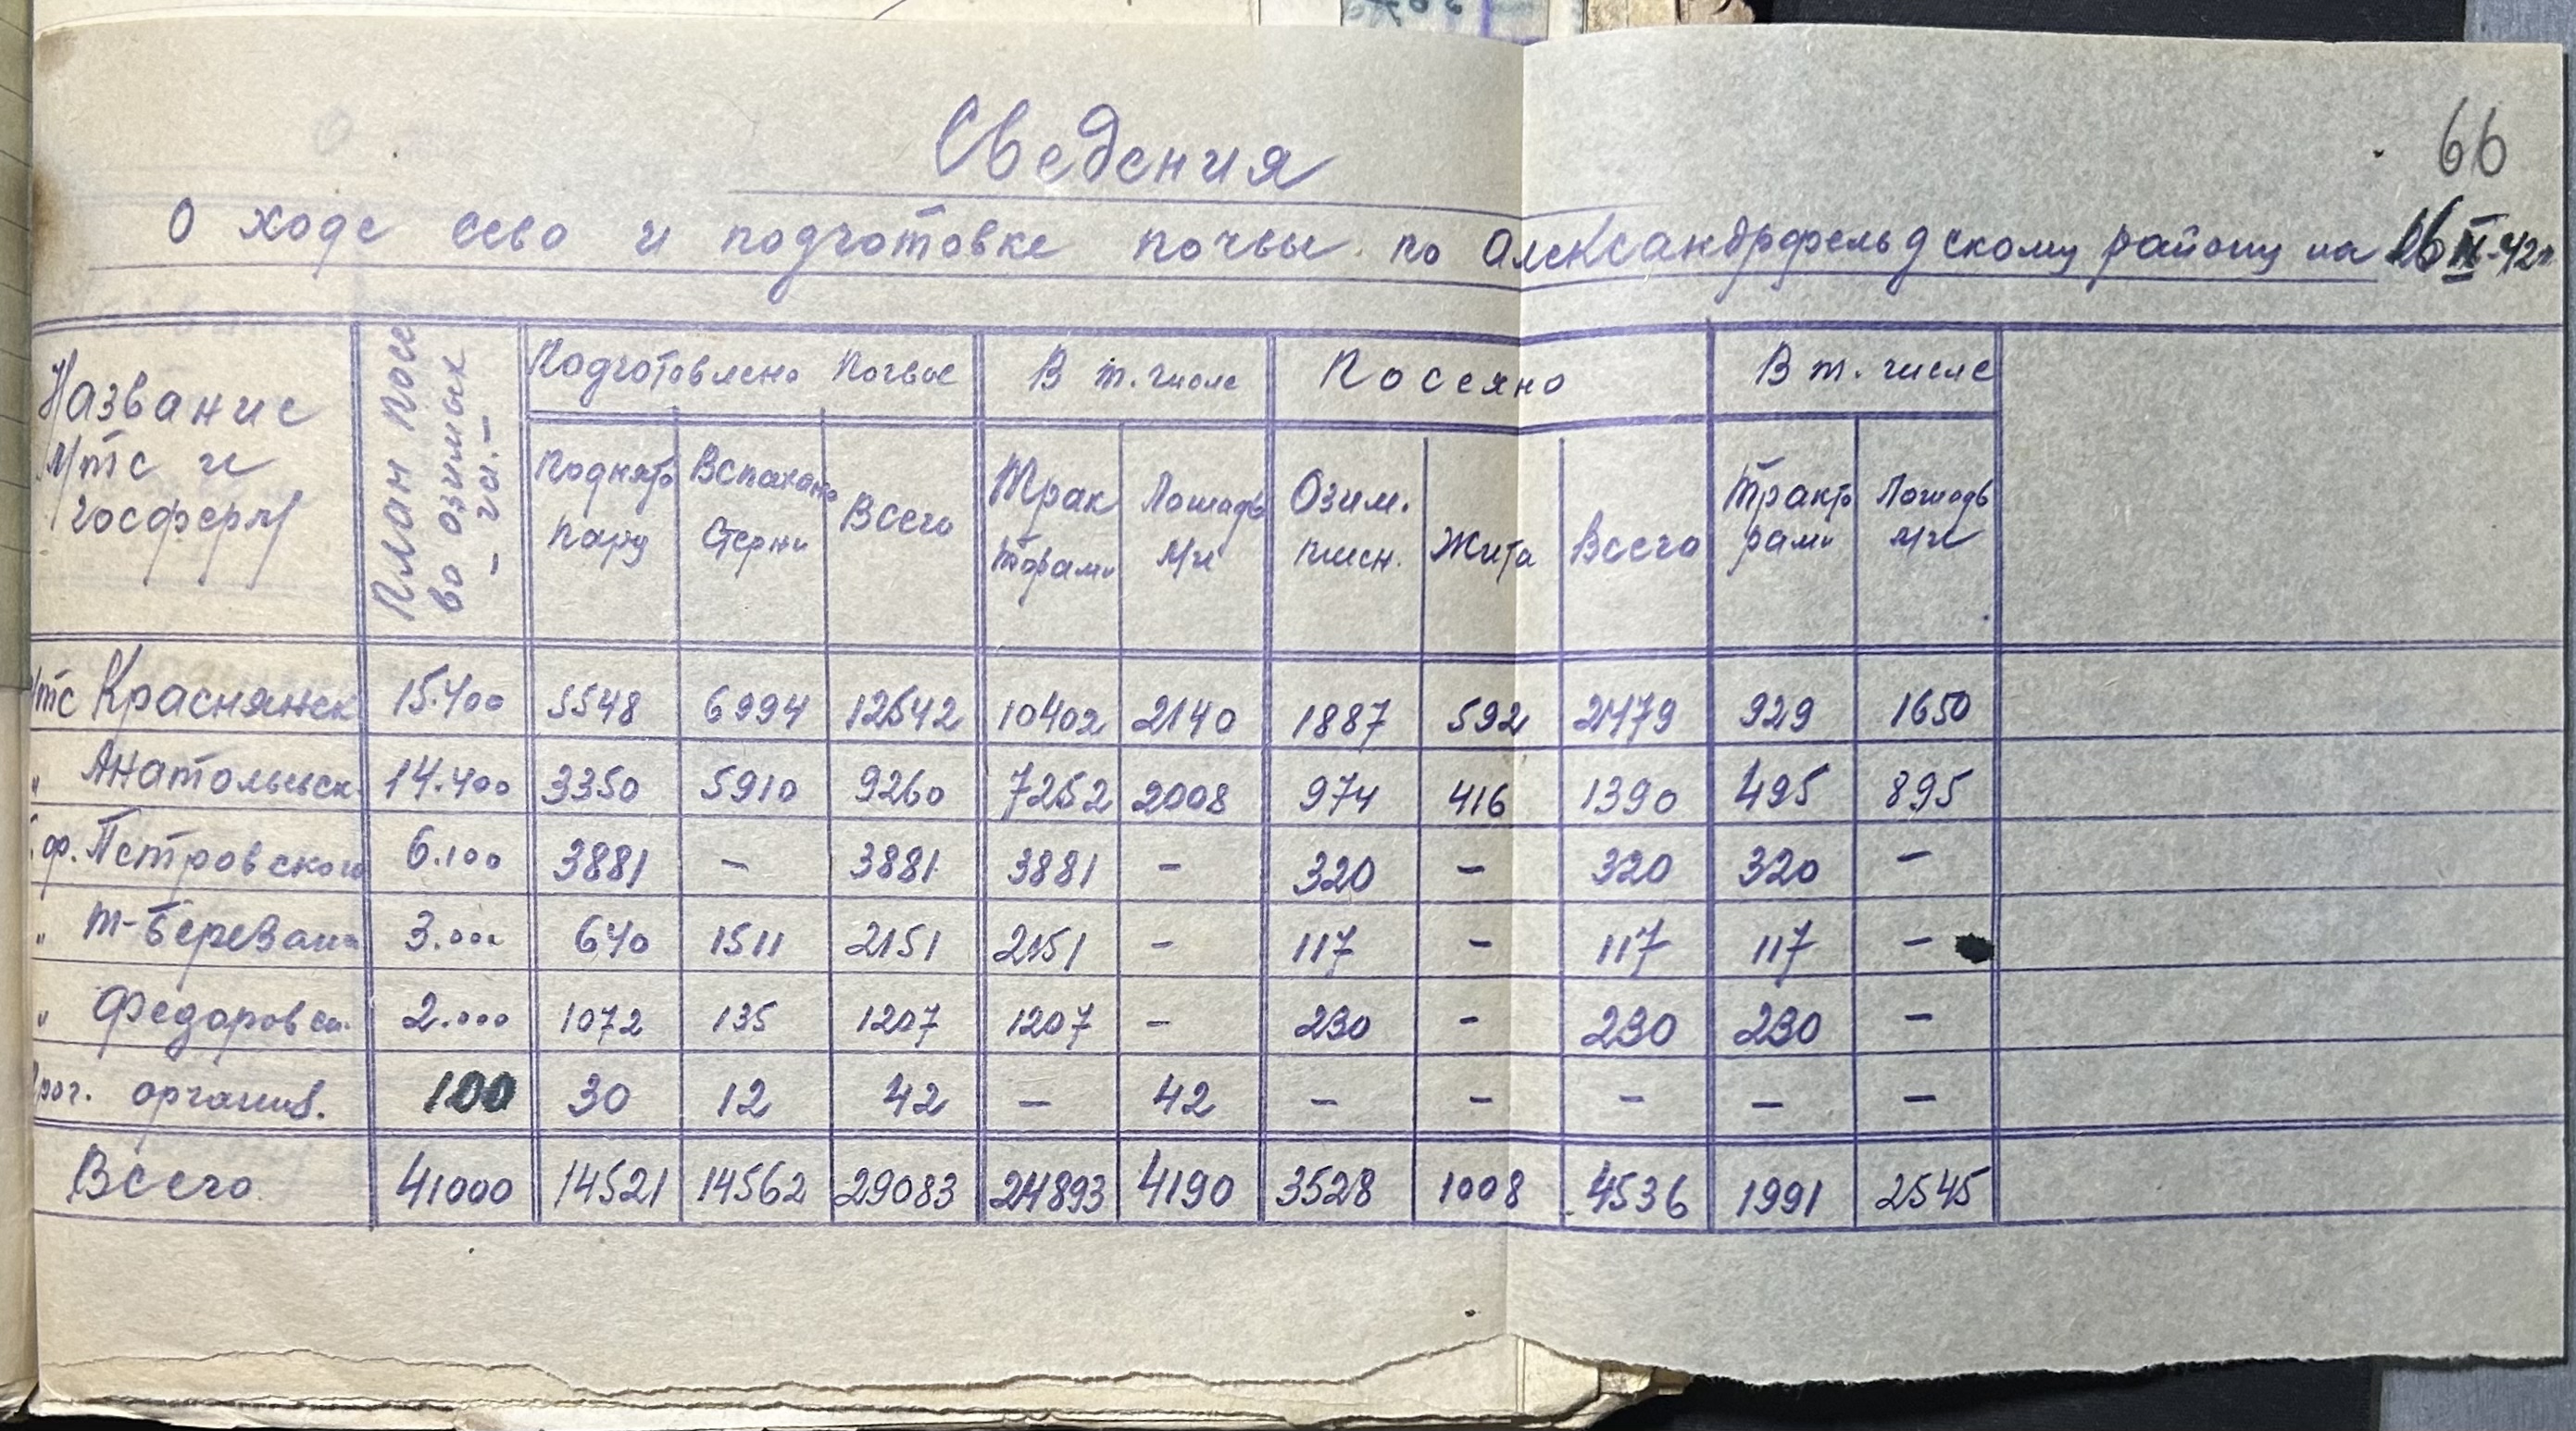 66
Сведения
О ходе сева и подготовке почвы по Александрфельдскому району на 26 IX-42г
Название МТС и госферм | План посева озимых - га.- | Подготовлено почвы | В т. числе | Посеяно | В т. числе
Поднято пару | Вспахано стерни | Всего | Тракторами | Лошадьми | Озим. пшен. | Жита | Всего | Тракторами | Лошадьми
мтс Краснянск | 15.400 | 5548 | 6994 | 12542 | 10402 | 2140 | 1887 | 592 | 2479 | 929 | 1650
" Анатольевск. | 14.400 | 3350 | 5910 | 9260 | 7252 | 2008 | 974 | 416 | 1390 | 495 | 895
Г.ф. Петровского | 6.100 | 3881 | - | 3881 | 3881 | - | 320 | - | 320 | 320 | -
" Т-Березань | 3.000 | 640 | 1511 | 2151 | 2151 | - | 117 | - | 117 | 117 | -
" Федоровск. | 2.000 | 1072 | 135 | 1207 | 1207 | - | 230 | - | 230 | 230 | -
Проч. организ. | 100 | 30 | 12 | 42 | - | 42 | - | - | - | - | -
Всего | 41000 | 14521 | 14562 | 29083 | 24893 | 4190 | 3528 | 1008 | 4536 | 1991 | 2545